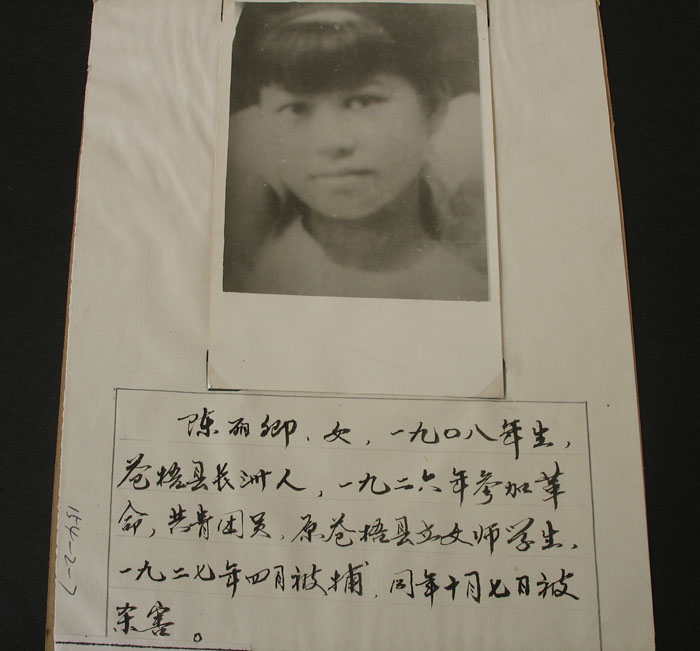 陈丽卿、女，一九〇八年生，
苍梧县长洲人，一九二六年参加革
命，共青团员，原苍梧县立女师学生、
一九二七年四月被捕，同年十月七日被
杀害。
154-2-7